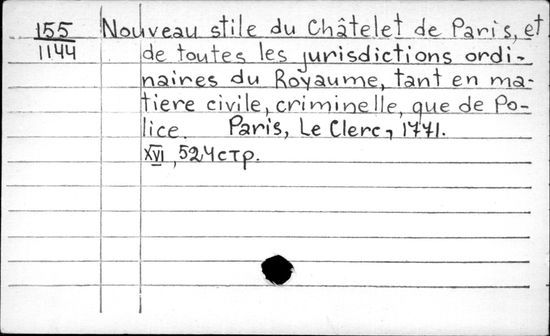 155 Nouveau stile du Châtelet de Paris, et
1144 de toutes les jurisdictions ordi-
naires du Royaume, tant en ma-
tiere civile, criminelle, que de Po-
lice. Paris, Le Clerc, 1771.
XVI, 524 стр.